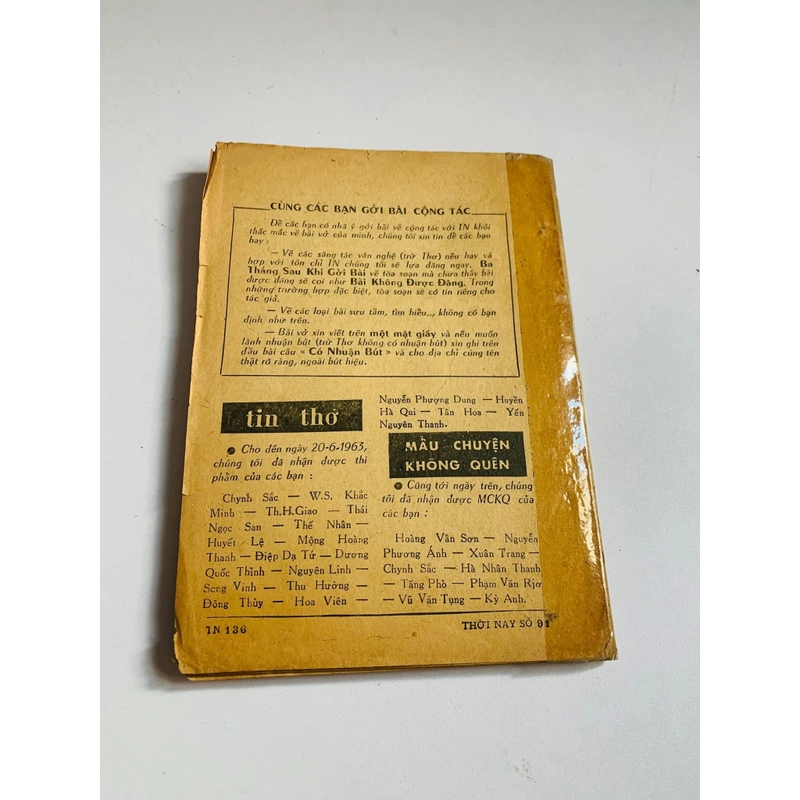 CÙNG CÁC BẠN GỞI BÀI CỘNG TÁC
Để các bạn có nhã ý gởi bài về cộng tác với TN khỏi
thắc mắc về bài vở của mình, chúng tôi xin tin để các bạn
hay :
— Về các sáng tác văn nghệ (trừ Thơ) nếu hay và
hợp với tôn chỉ TN chúng tôi sẽ lựa đăng ngay. Ba
Tháng Sau Khi Gởi Bài về tòa soạn mà chưa thấy bài
được đăng sẽ coi như Bài Không Được Đăng. Trong
những trường hợp đặc biệt, tòa soạn sẽ có tin riêng cho
tác giả.
— Về các loại bài sưu tầm, tìm hiểu..., không có hạn
định như trên.
— Bài vở xin viết trên một mặt giấy và nếu muốn
lãnh nhuận bút (trừ Thơ không có nhuận bút) xin ghi trên
đầu bài câu « Có Nhuận Bút » và cho địa chỉ cùng tên
thật rõ ràng, ngoài bút hiệu.
tin thơ
● Cho đến ngày 20-6-1963,
chúng tôi đã nhận được thi
phẩm của các bạn :
Chynh Sắc — W.S. Khắc
Minh — Th.H.Giao — Thái
Ngọc San — Thế Nhân —
Huyết Lệ — Mộng Hoàng
Thanh — Điệp Dạ Tứ — Dương
Quốc Thỉnh — Nguyên Linh —
Song Vinh — Thu Hưởng —
Đông Thùy — Hoa Viên —
Nguyễn Phượng Dung — Huyền
Hà Qui — Tân Hoa — Yến
Nguyên Thanh.
MẨU CHUYỆN
KHÔNG QUÊN
● Cũng tới ngày trên, chúng
tôi đã nhận được MCKQ của
các bạn :
Hoàng Vân Sơn — Nguyễn
Phương Ánh — Xuân Trang —
Chynh Sắc — Hà Nhân Thanh
— Tăng Phò — Phạm Văn Rjơ
— Vũ Văn Tụng — Kỳ Anh.
TN 136
THỜI NAY SỐ 91